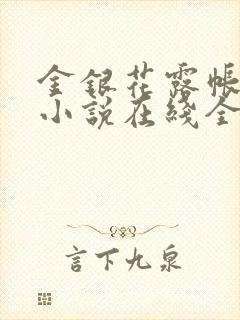 金銀花露帳
小說在綫全
言下九泉